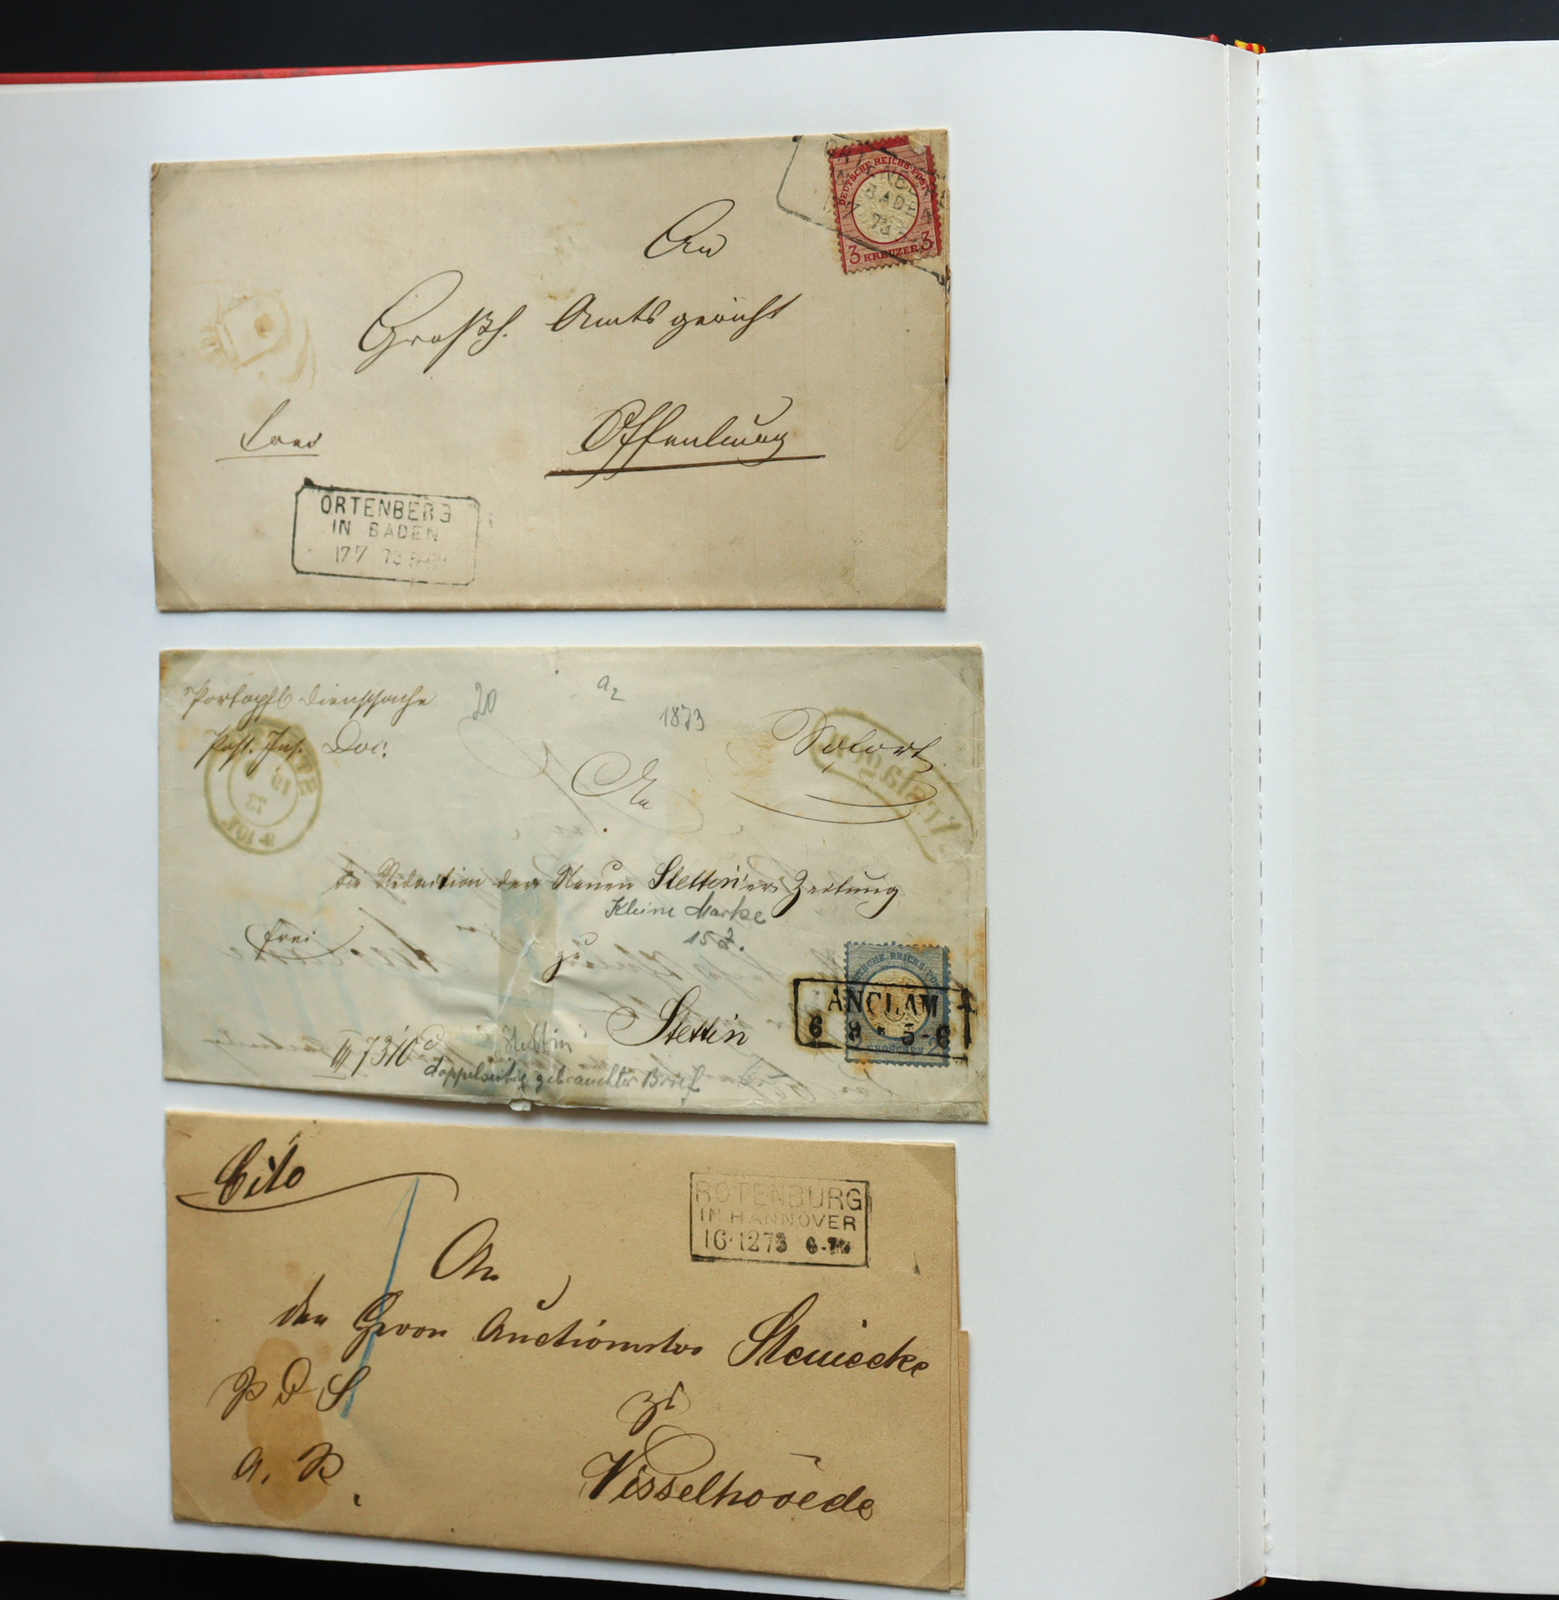 An
DEUTSCHE REICHS-POST
BADEN
73
3 KREUZER 3
Großh. Amtsgericht
frei
Offenburg
ORTENBERG
IN BADEN
17 7 73
Portopfl. Dienstsache
20
a2
1873
Sofort
An
die Redaction der Neuen Stettiner Zeitung
Kleine Marke
frei
zu
ANCLAM
6 8 5-6
GROSCHEN
Stettin
Stettin
doppelseitig gebrauchter Brief
Cito
ROTENBURG
IN HANNOVER
16 12 73 6-7N
An
den Herrn Auctionator Steinecke
P D S
zu
A. R.
Visselhövede